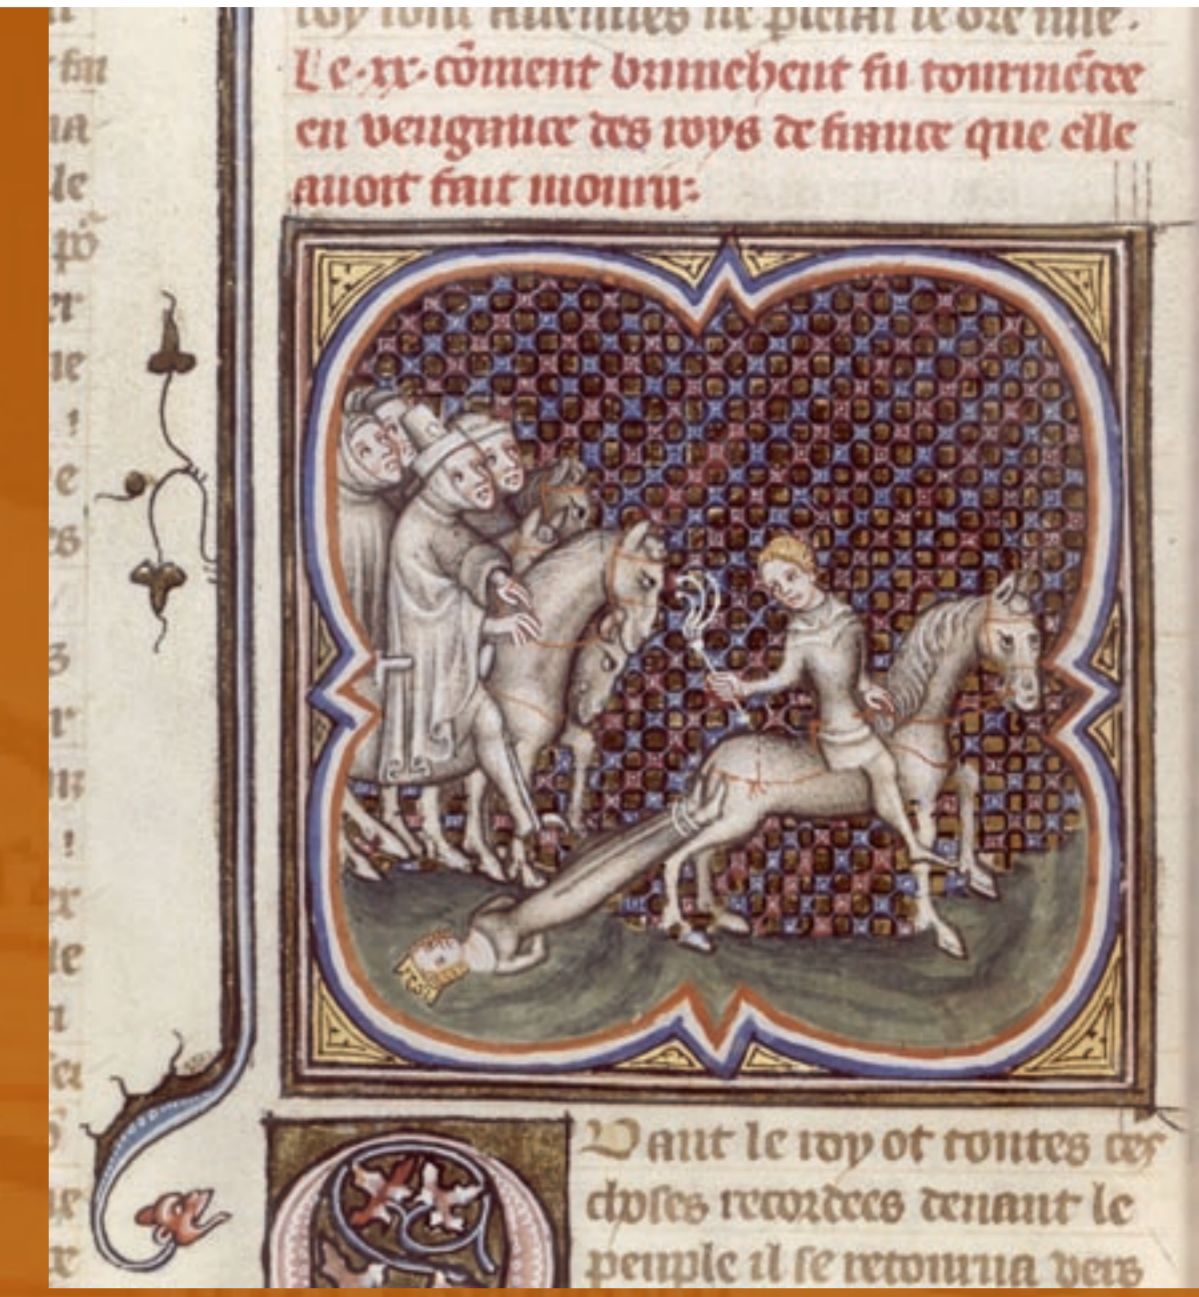 roy sont
Le .xx. cōment bruneheut fu tourmētee
en vengance des roys de france que elle
auoit fait mourir
fin
na
le
pō
er
ne
e
es
r
le
Quant le roy ot toutes ces
choses recordees deuant le
peuple il se retourna vers